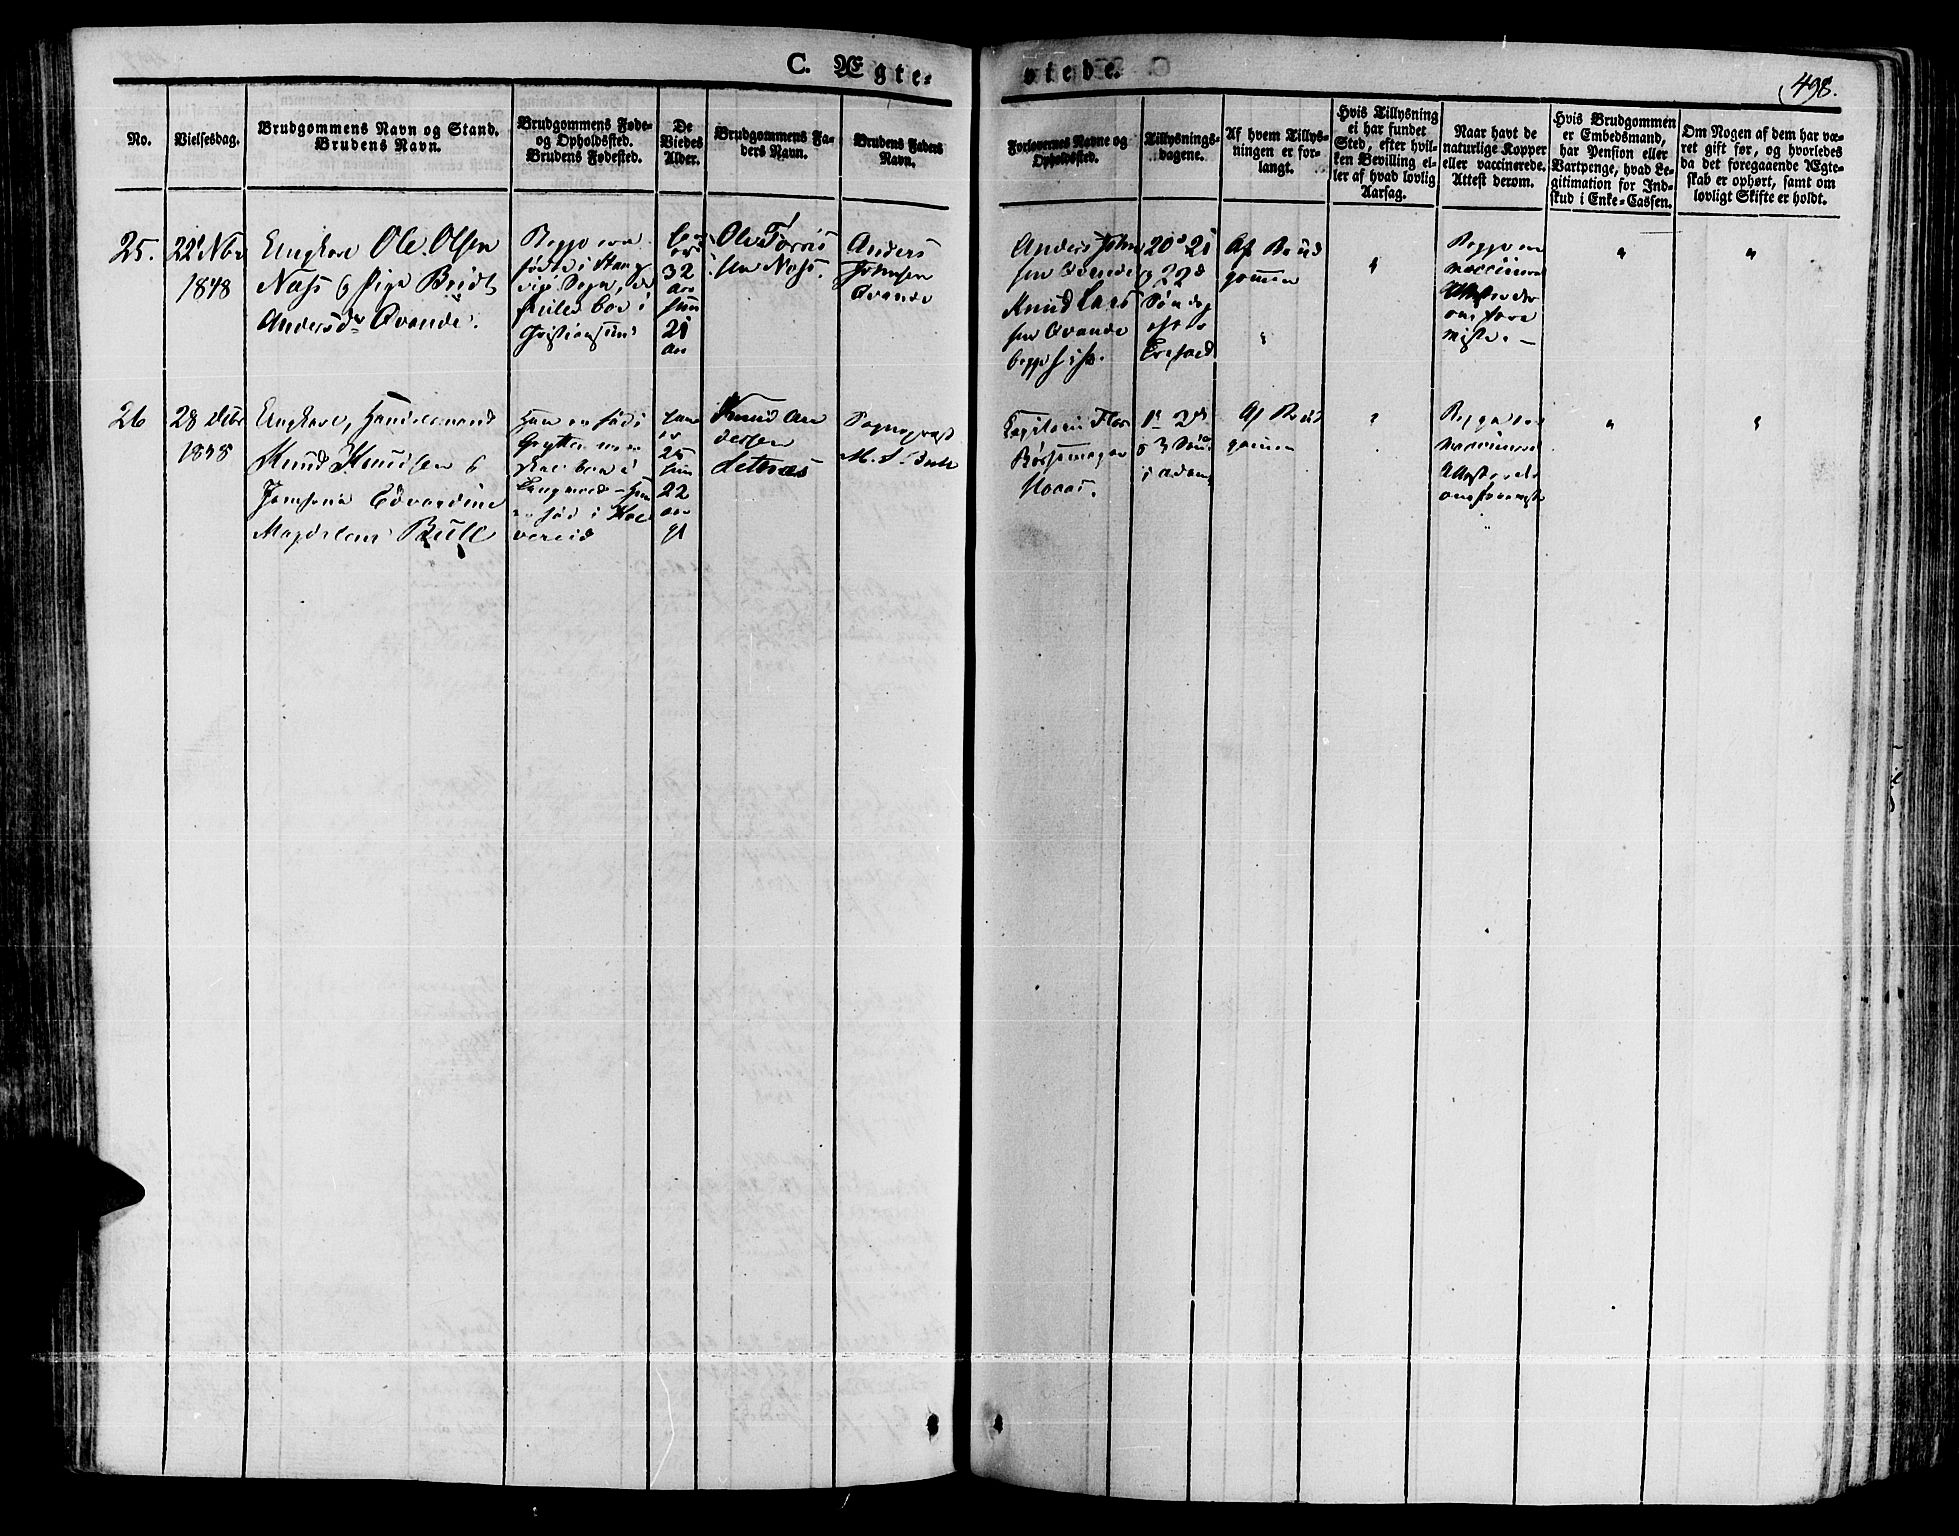 C. Ægte-
viede.
498.
No.
Vielsesdag.
Brudgommens Navn og Stand.
Brudens Navn.
Brudgommens Føde-
og Opholdssted.
Brudens Fødested.
De
Viedes
Alder.
Brudgommens Fa-
ders Navn.
Brudens Faders
Navn.
Forlovernes Navne og
Opholdssted.
Tillysnings-
dagene.
Af hvem Tillys-
ningen er for-
langt.
Hvis Tillysning
ei har fundet
Sted, efter hvil-
ken Bevilling el-
ler af hvad lovlig
Aarsag.
Naar havt de
naturlige Kopper
eller vaccinerede.
Attest derom.
Hvis Brudgommen
er Embedsmand,
har Pension eller
Vartpenge, hvad Le-
gitimation for Ind-
skud i Enke-Cassen.
Om Nogen af dem har væ-
ret gift før, og hvorledes
da det foregaaende Ægte-
skab er ophørt, samt om
lovligt Skifte er holdt.
25.
22 Nbr
1848
Ungkarl Ole Olsen
Næss og Pige Beret
Andersdr Qvande.
Begge ere
fødte i Stang
vig Sogn,
boe i
Christiansund
32
aar
hun
21
aar
Ole Torris
sen Næss.
Anders
Johnsen
Qvande
Anders John
sen Qvande
Knud Lars
sen Qvande
begge
20d 21
og 22d
Søndag
efter
Trefold
Af Brud
gommen
"
"
Begge ere
vaccinerede
"
"
26
28 Decbr
1848
Ungkarl, Handelsmand
Knud Knudsen og
Jomfrue Edvardine
Magdalena Bull
Han er fød i
Grytten
boe i
hun
er fød i
han
er
25
hun
22
aar
gl
Knud An
dersen
Sogneprest
Bull
1d 2d
og 3 Søn
i advent
Af Brud
gommen
"
Begge ere
vaccinerede
"
"